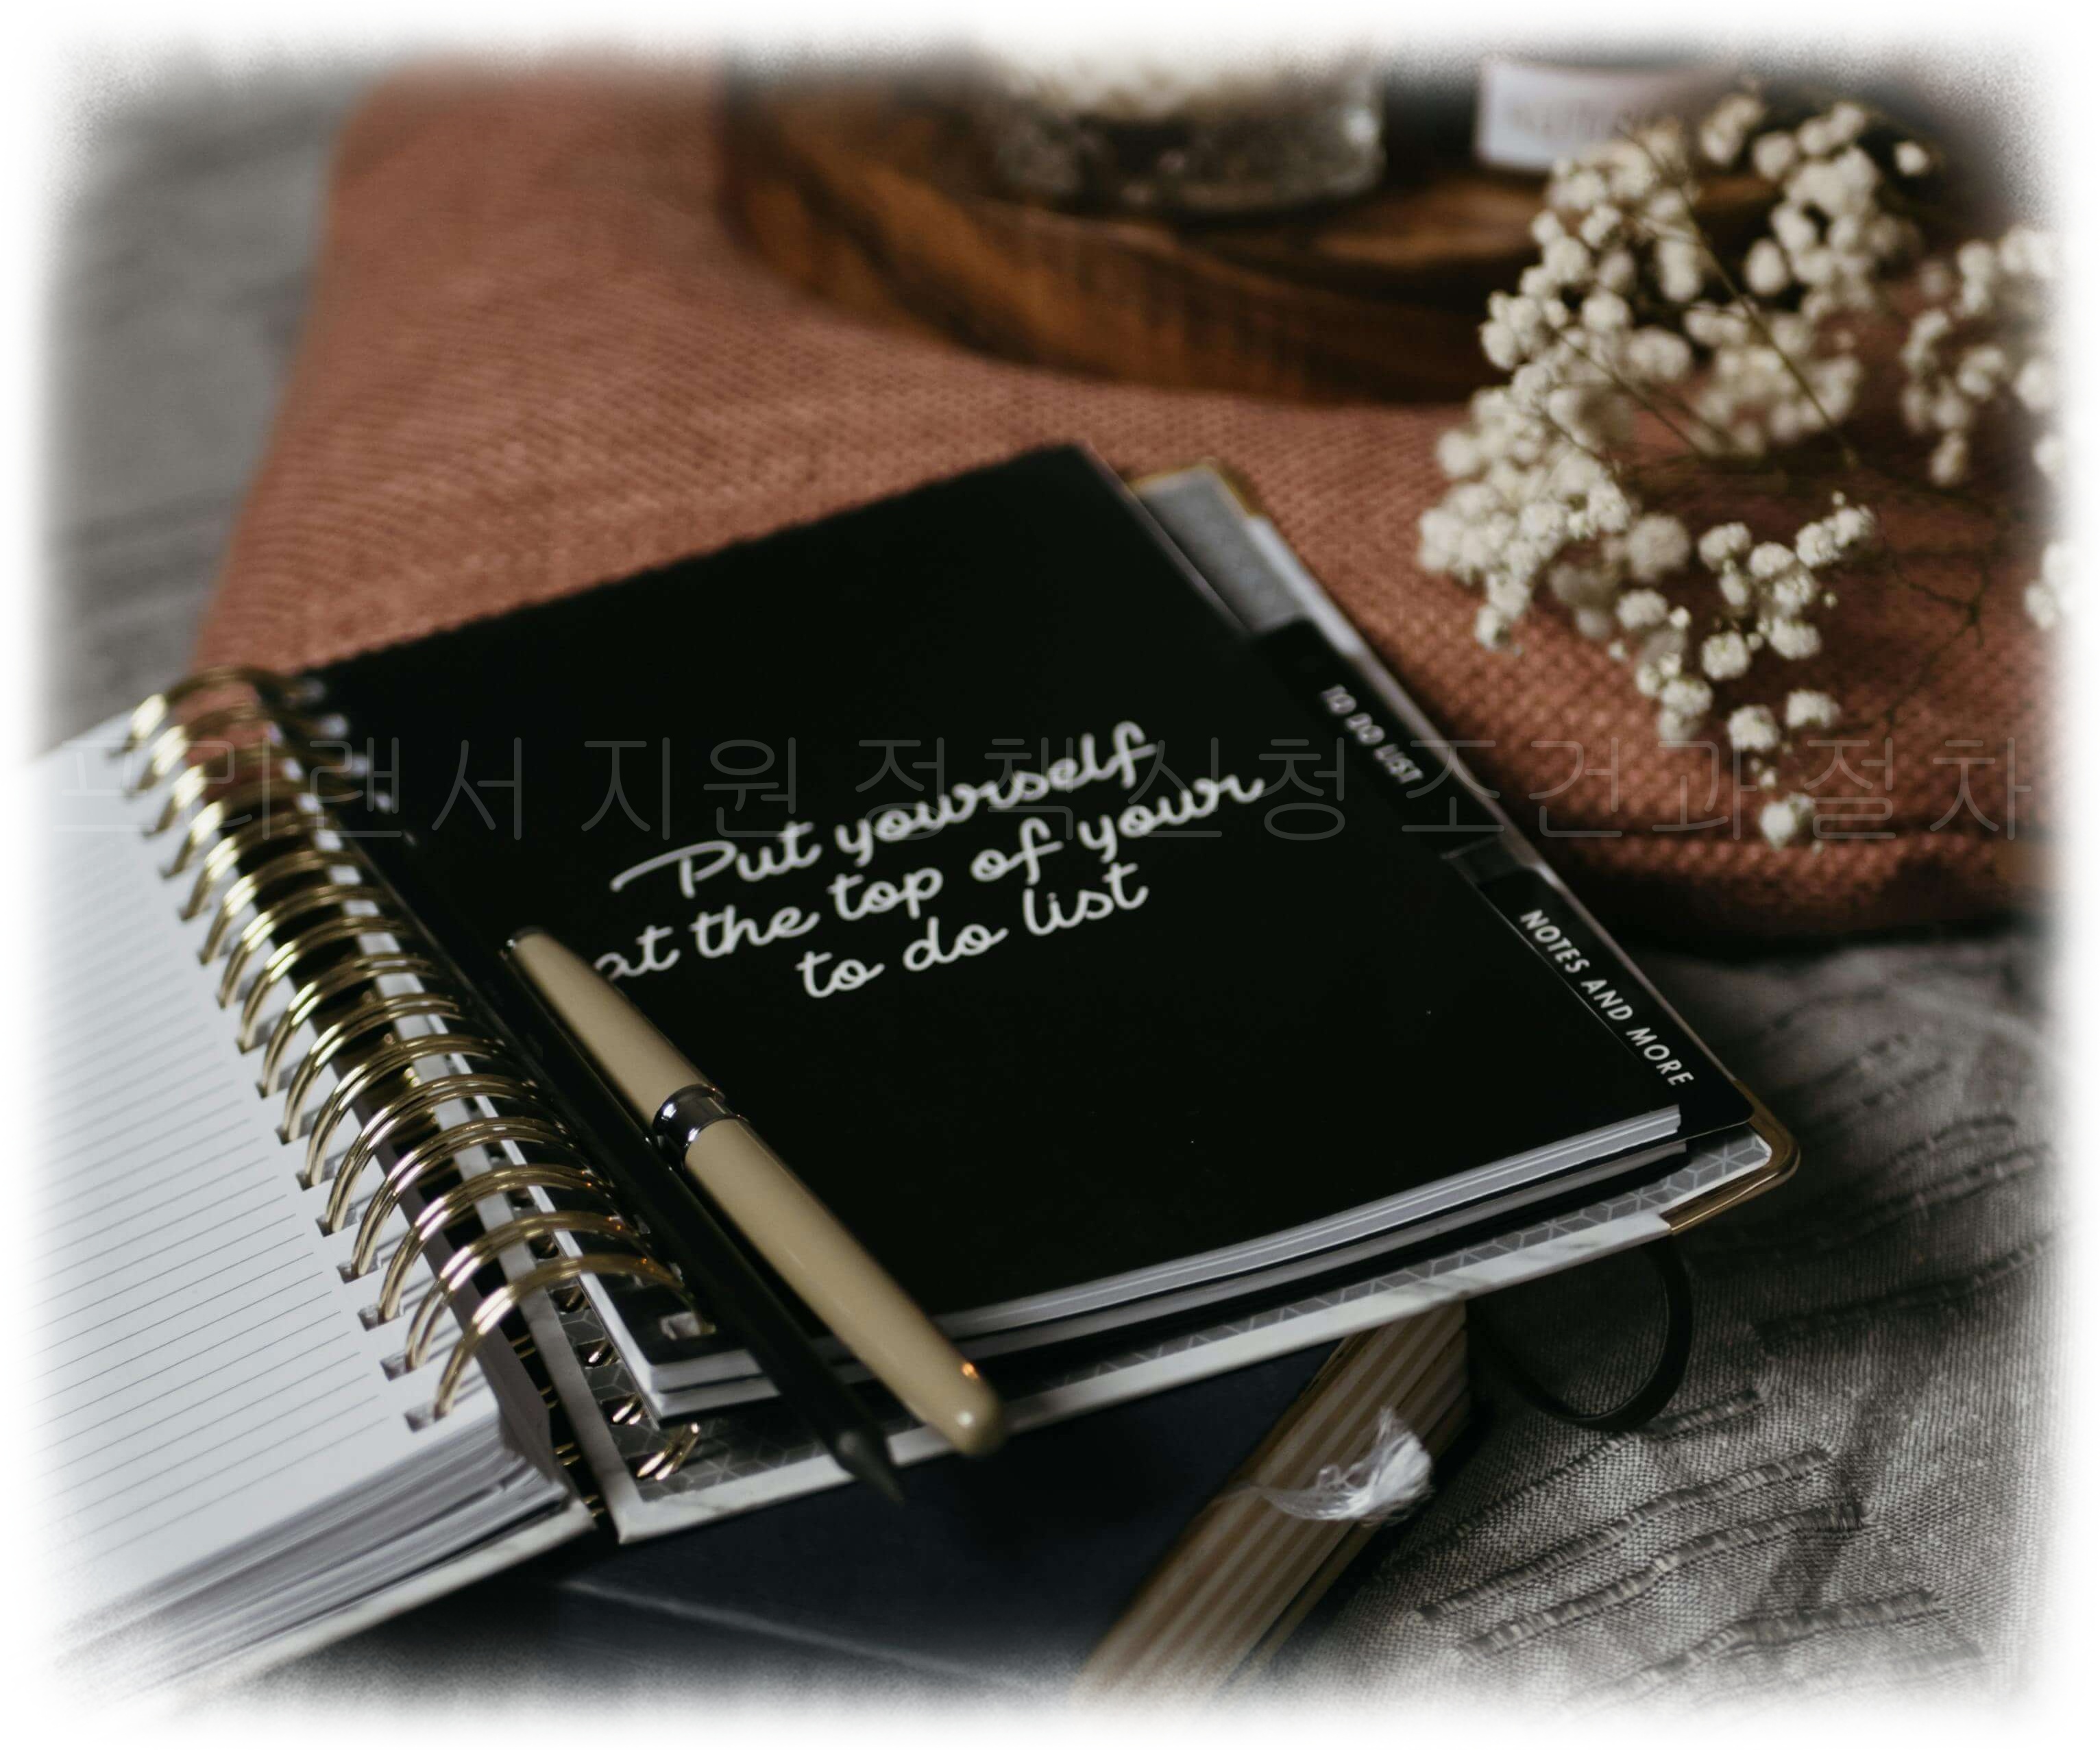 프리랜서 지원 정책 신청 조건과 절차
Put yourself
at the top of your
to do list
TO DO LIST
NOTES AND MORE